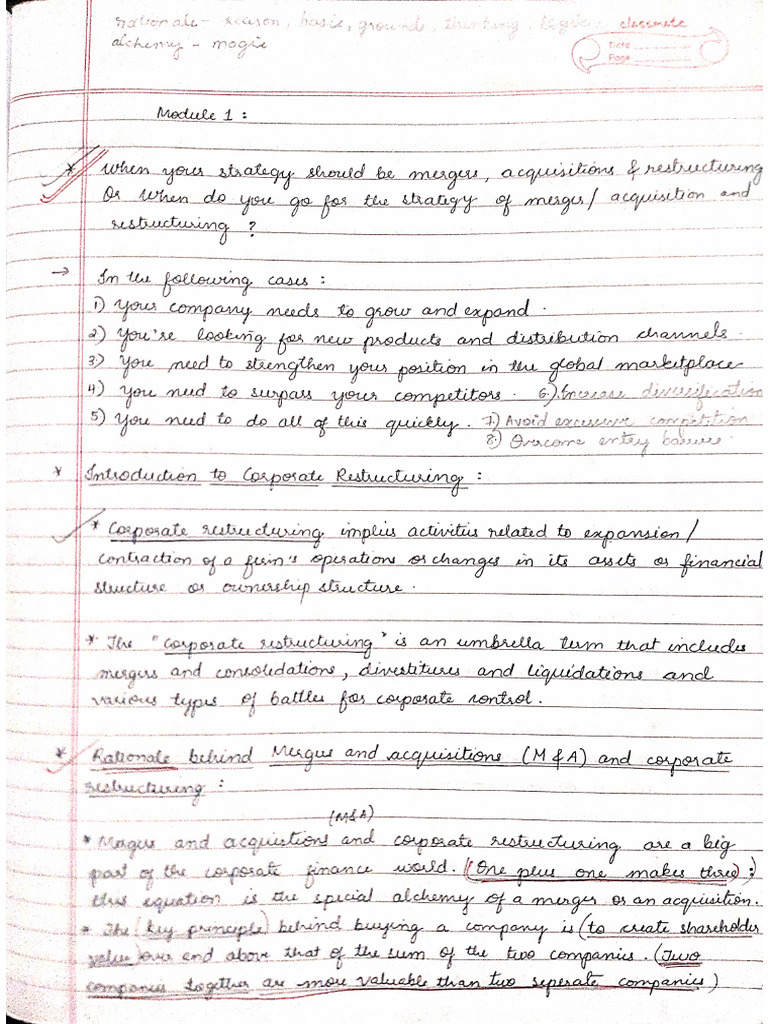 Rationale - reason, basis, ground, thinking, logic.
classmate
alchemy - magic
Date
Page
Module 1 :
* When your strategy should be mergers, acquisitions & restructuring
Or When do you go for the strategy of merger/ acquisition and
restructuring ?
→ In the following cases :
1) Your company needs to grow and expand.
2) You're looking for new products and distribution channels.
3) You need to strengthen your position in the global marketplace
4) You need to surpass your competitors. 6.) Increase diversification
5) You need to do all of this quickly. 7.) Avoid excessive competition
8.) Overcome entry barriers.
* Introduction to Corporate Restructuring :
* Corporate restructuring implies activities related to expansion/
contraction of a firm's operations or changes in its assets or financial
structure or ownership structure.
* The "corporate restructuring" is an umbrella term that includes
mergers and consolidations, divestitures and liquidations and
various types of battles for corporate control.
* Rationale behind Mergers and acquisitions (M & A) and corporate
restructuring :
(M&A)
* Mergers and acquistions and corporate restructuring are a big
part of the corporate finance world. (One plus one makes three) :
this equation is the special alchemy of a merger or an acquisition.
* The (key principle) behind buying a company is (to create shareholder
value) over and above that of the sum of the two companies. (Two
companies together are more valuable than two seperate companies)